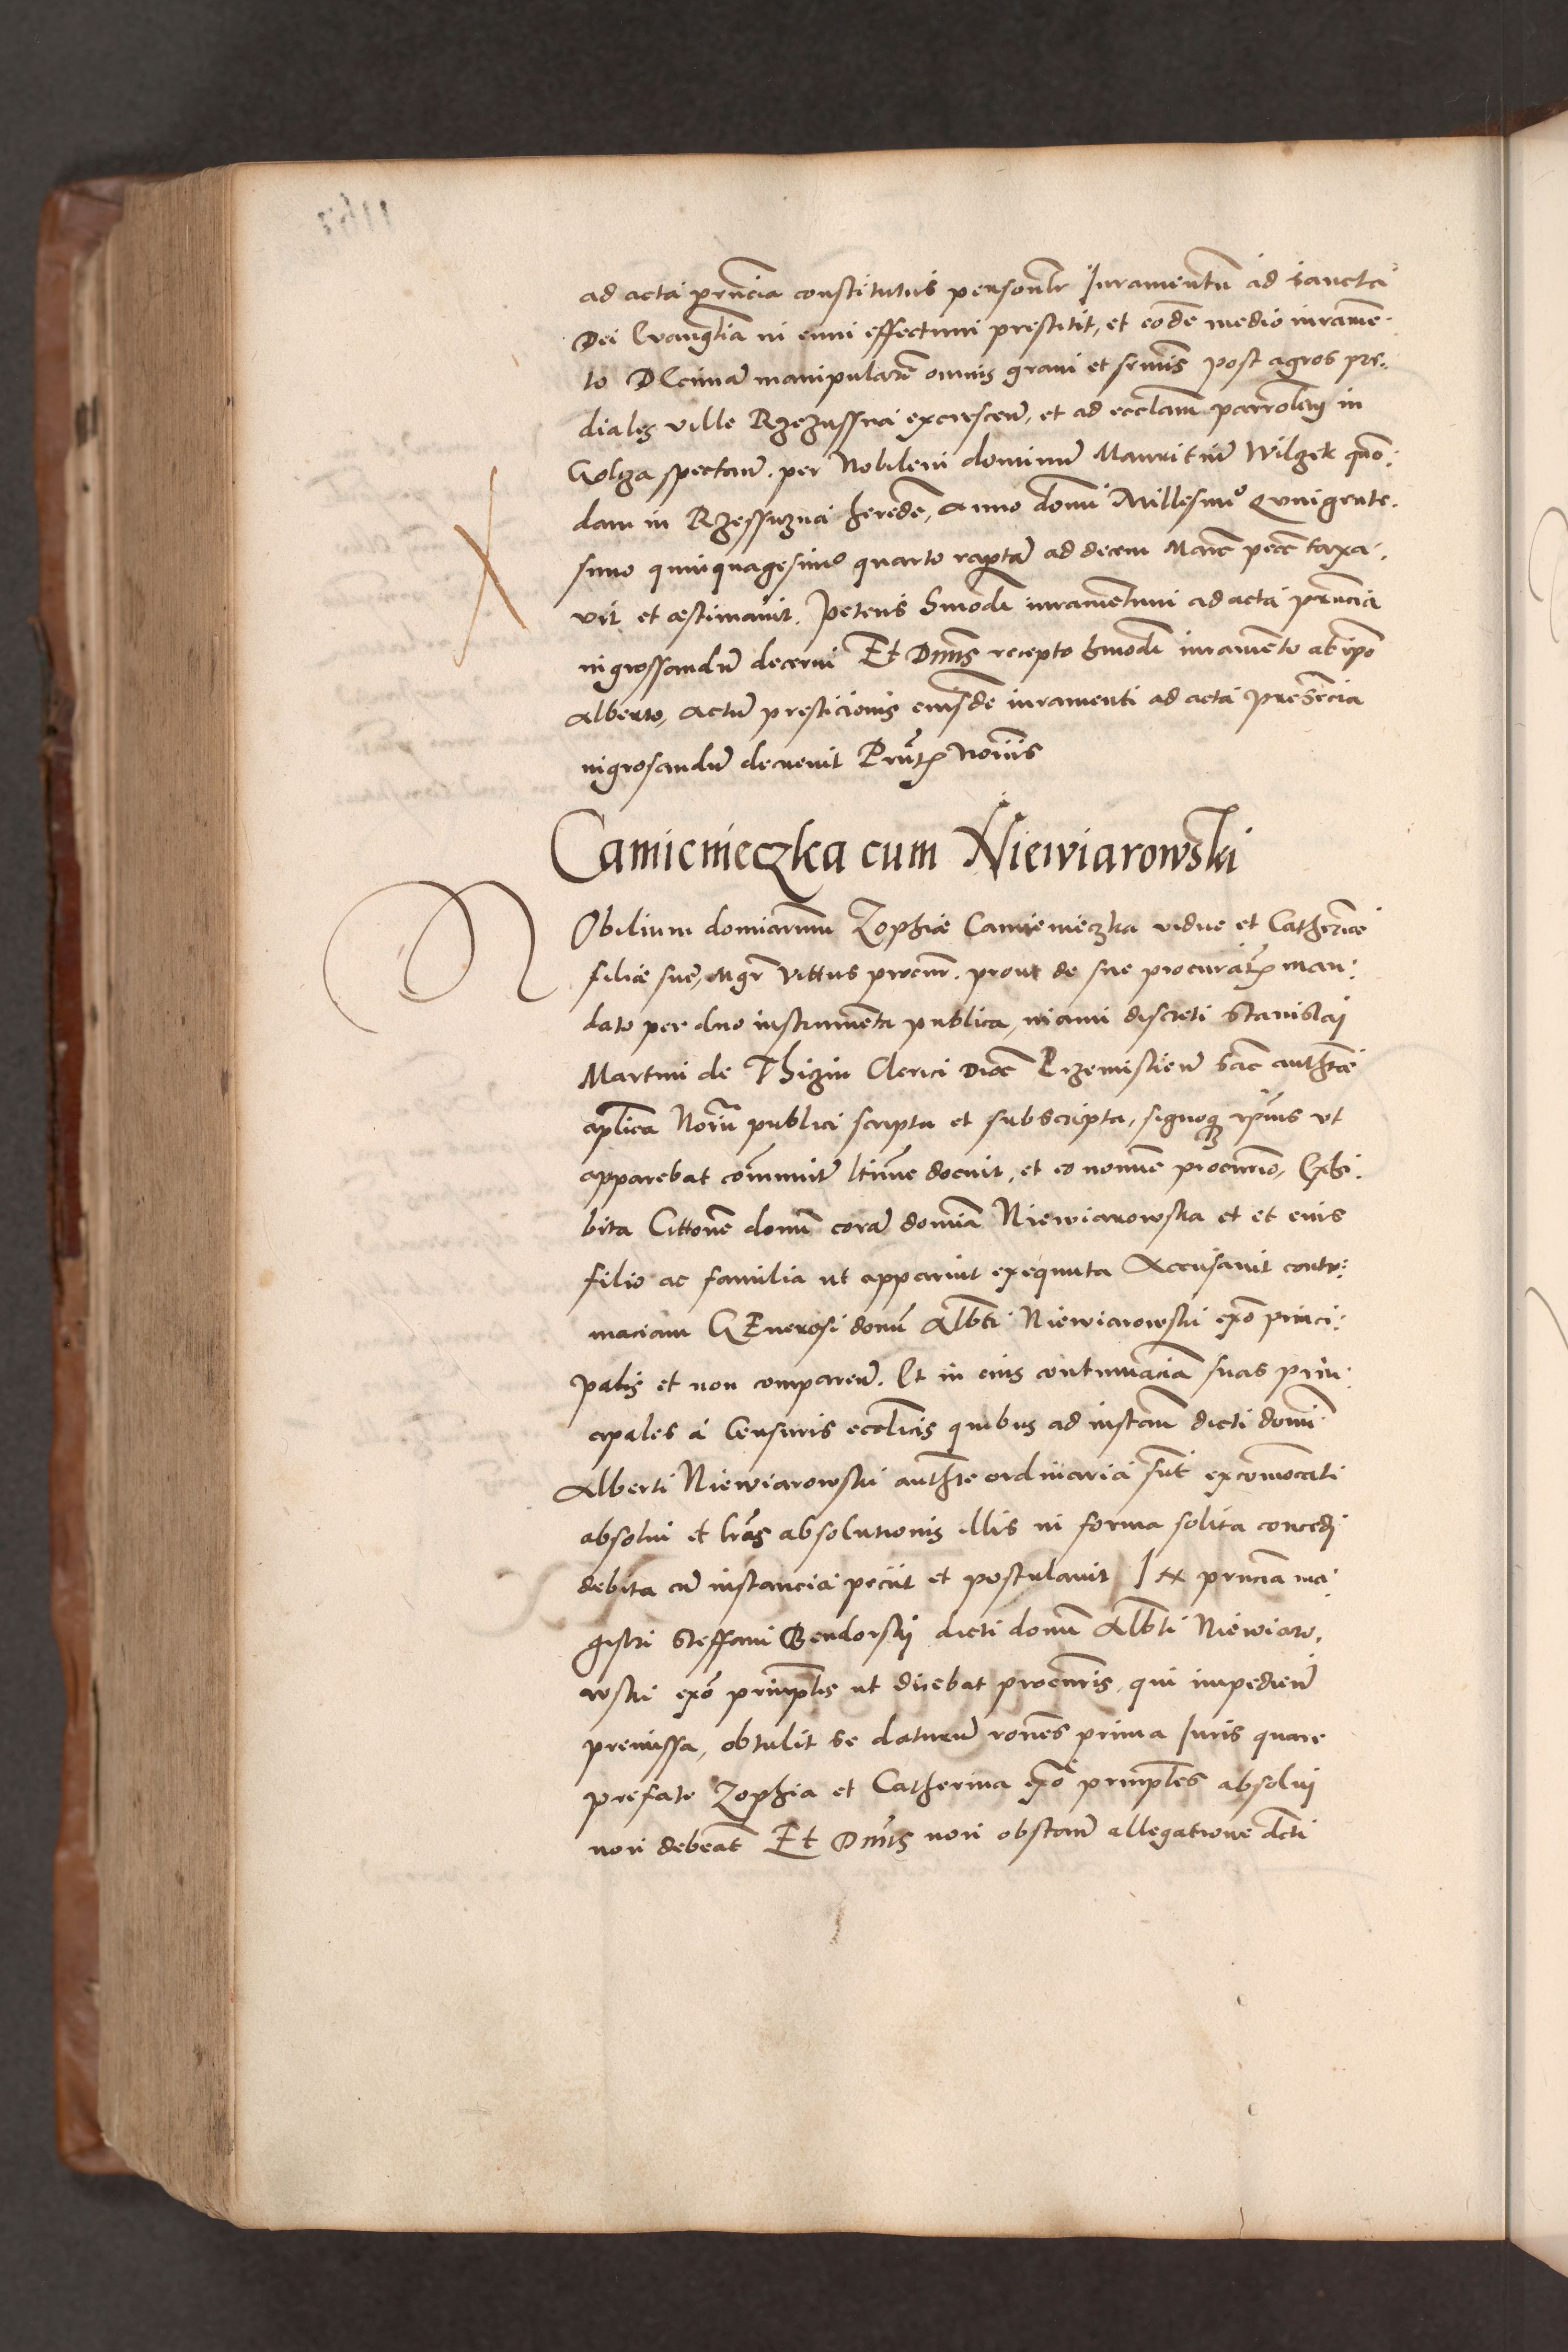 ad acta prñcia constitutus personlr Iuramentũ ad sancta
Dei Evanglia in eum effectum prestitit, et eodẽ medio iuramẽ-
to Decimã manipularẽ omnis grani et seminis post agros pre-
diales ville Rzezussna excrescen, et ad ecclam parrochlem in
Golcza spectañ. per Nobilem dominũ Mauritiũ Wilgek quõ-
dam in Rzessuzna heredẽ, Anno domi Millesimo Quingente-
simo quinquagesimo quarto raptã ad decem Marc pecc taxa-
vit et æstimavit. Petens hmodi iuramentum ad acta prñcia
ingrossandũ decerni Et Dnus recepto hmodi iuramento ab ipo
Alberto, Actũ presticionis eiusdẽ iuramenti ad acta presencia
ingrosandũ decrevit Prñtz Noriis
Camienieczka cum Niewiarowski
Nobilium dominarum Zophiæ Camienieczka vidue et Catherinæ
filiæ sue, Mgr Vittus procur. prout de sue procuratz man-
dato per duo instrumenta publica, manu discreti Stanislai
Martini de Thizin Clerici Dioc Przemislien Sac authte
aplica Norii publici scripta et subscripta, signoqz ipius vt
apparebat communit ltime docuit, et eo nomie procurio, Exhi-
bita Cittone domi corã domina Niewiarowska et et eius
filio ac familia ut apparuit exequuta Accusavit contu-
maciam GEnerosi domi Albti Niewiarowski exo princi-
palis et non compareñ. Et in eius contumaciã suas prin-
cipales a Censuris ecclicis quibus ad instam dicti domi
Alberti Niewiarowski authte ordinaria sunt excomocati
absolvi et lras absolutionis illis in forma solita concedi
debita cũ instancia peciit et postulavit In prñcia ma-
gistri Steffani Bendorski dicti domi Albti Niewiaro-
wski exo principlis ut dicebat procuris, qui impedieñ
premissa, obtulit se daturũ rones prima Iuris quare
prefate Zophia et Catherina exo prinples absolvi
non debeãt Et Dnus non obstañ allegatione dcti